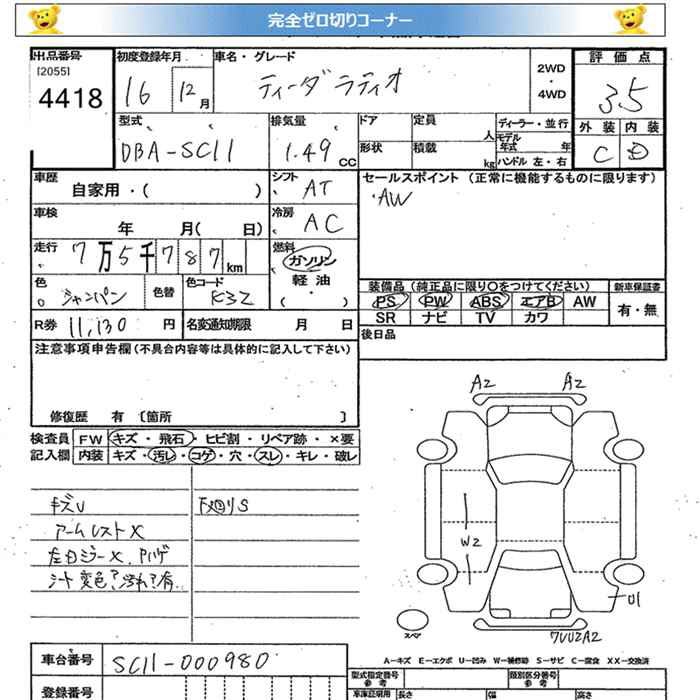 完全ゼロ切りコーナー
出品番号 初度登録年月 車名・グレード 評価点
[2055]
4418 16 12月 ティーダラティオ 2WD・4WD 3.5
外装 内装
C D
型式 排気量 ドア 定員 人 ディーラー・並行
DBA-SC11 1.49 CC モデル年式 年
形状 積載 kg ハンドル 左・右
車歴 自家用・( ) シフト AT セールスポイント (正常に機能するものに限ります)
・AW
車検 年 月( 日) 冷房 AC
走行 7万5千787km 燃料 ガソリン
軽油
( ・ )
色 シャンパン 色替 色コード K32
装備品(純正品に限り○をつけてください) 新車保証書
PS PW ABS エアB AW 有・無
SR ナビ TV カワ
R券 11,130 円 名変通知期限 月 日 後日品
注意事項申告欄(不具合内容等は具体的に記入して下さい)
修復歴 有 [箇所 ]
検査員 FW キズ・飛石・ヒビ割・リペア跡・×要
記入欄 内装 キズ・汚レ・コゲ・穴・スレ・キレ・破レ
キズU 下廻りS
アームレストX
左ドミラーX、ハゲ
シート変色?汚れ?有
A2 A2
W2
U1
スペア
7UU2A2
車台番号 SC11-000980
A-キズ E-エクボ U-凹み W-補修跡 S-サビ C-腐食 XX-交換済
型式指定番号 参考 類別区分番号 参考
登録番号 車庫証明用 長さ 幅 高さ